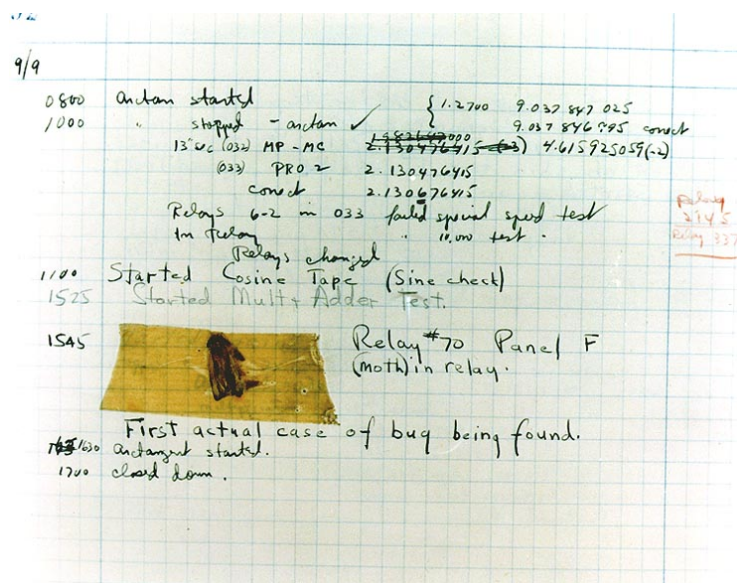 9/9
0800 arctan started { 1.2700 9.037 847 025
1000 " stopped - arctan ✓ 9.037 846 995 correct
13"uc (032) MP - MC 2.130476415 4.615925059(-2)
(033) PRO 2 2.130476415
correct 2.130676415
Relays 6-2 in 033 failed special speed test
In Relay " 10,000 test .
Relays changed
Relay
2145
Relay 337
1100 Started Cosine Tape (Sine check)
1525 Started Mult+ Adder Test.
1545 Relay #70 Panel F
(moth) in relay.
First actual case of bug being found.
1630 arctangent started.
1700 closed down .